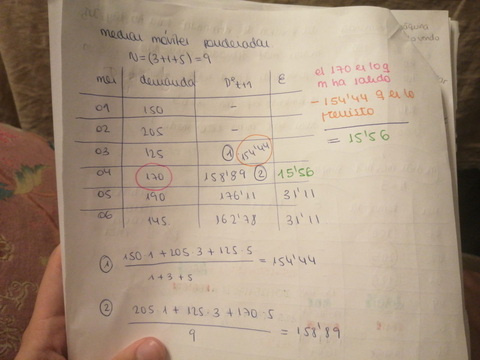 medias móviles ponderadas
N=(3+1+5)=9
mes demanda Dᵉt+1 E
01 150 -
02 205 -
03 125 ① 154'44
04 170 158'89 ② 15'56
05 190 176'11 31'11
06 145 162'78 31'11
el 170 es lo q
m ha salido
- 154'44 q es lo
previsto
= 15'56
① 150·1+205·3+125·5 = 154'44
1+3+5
② 205·1+125·3+170·5 = 158'89
9